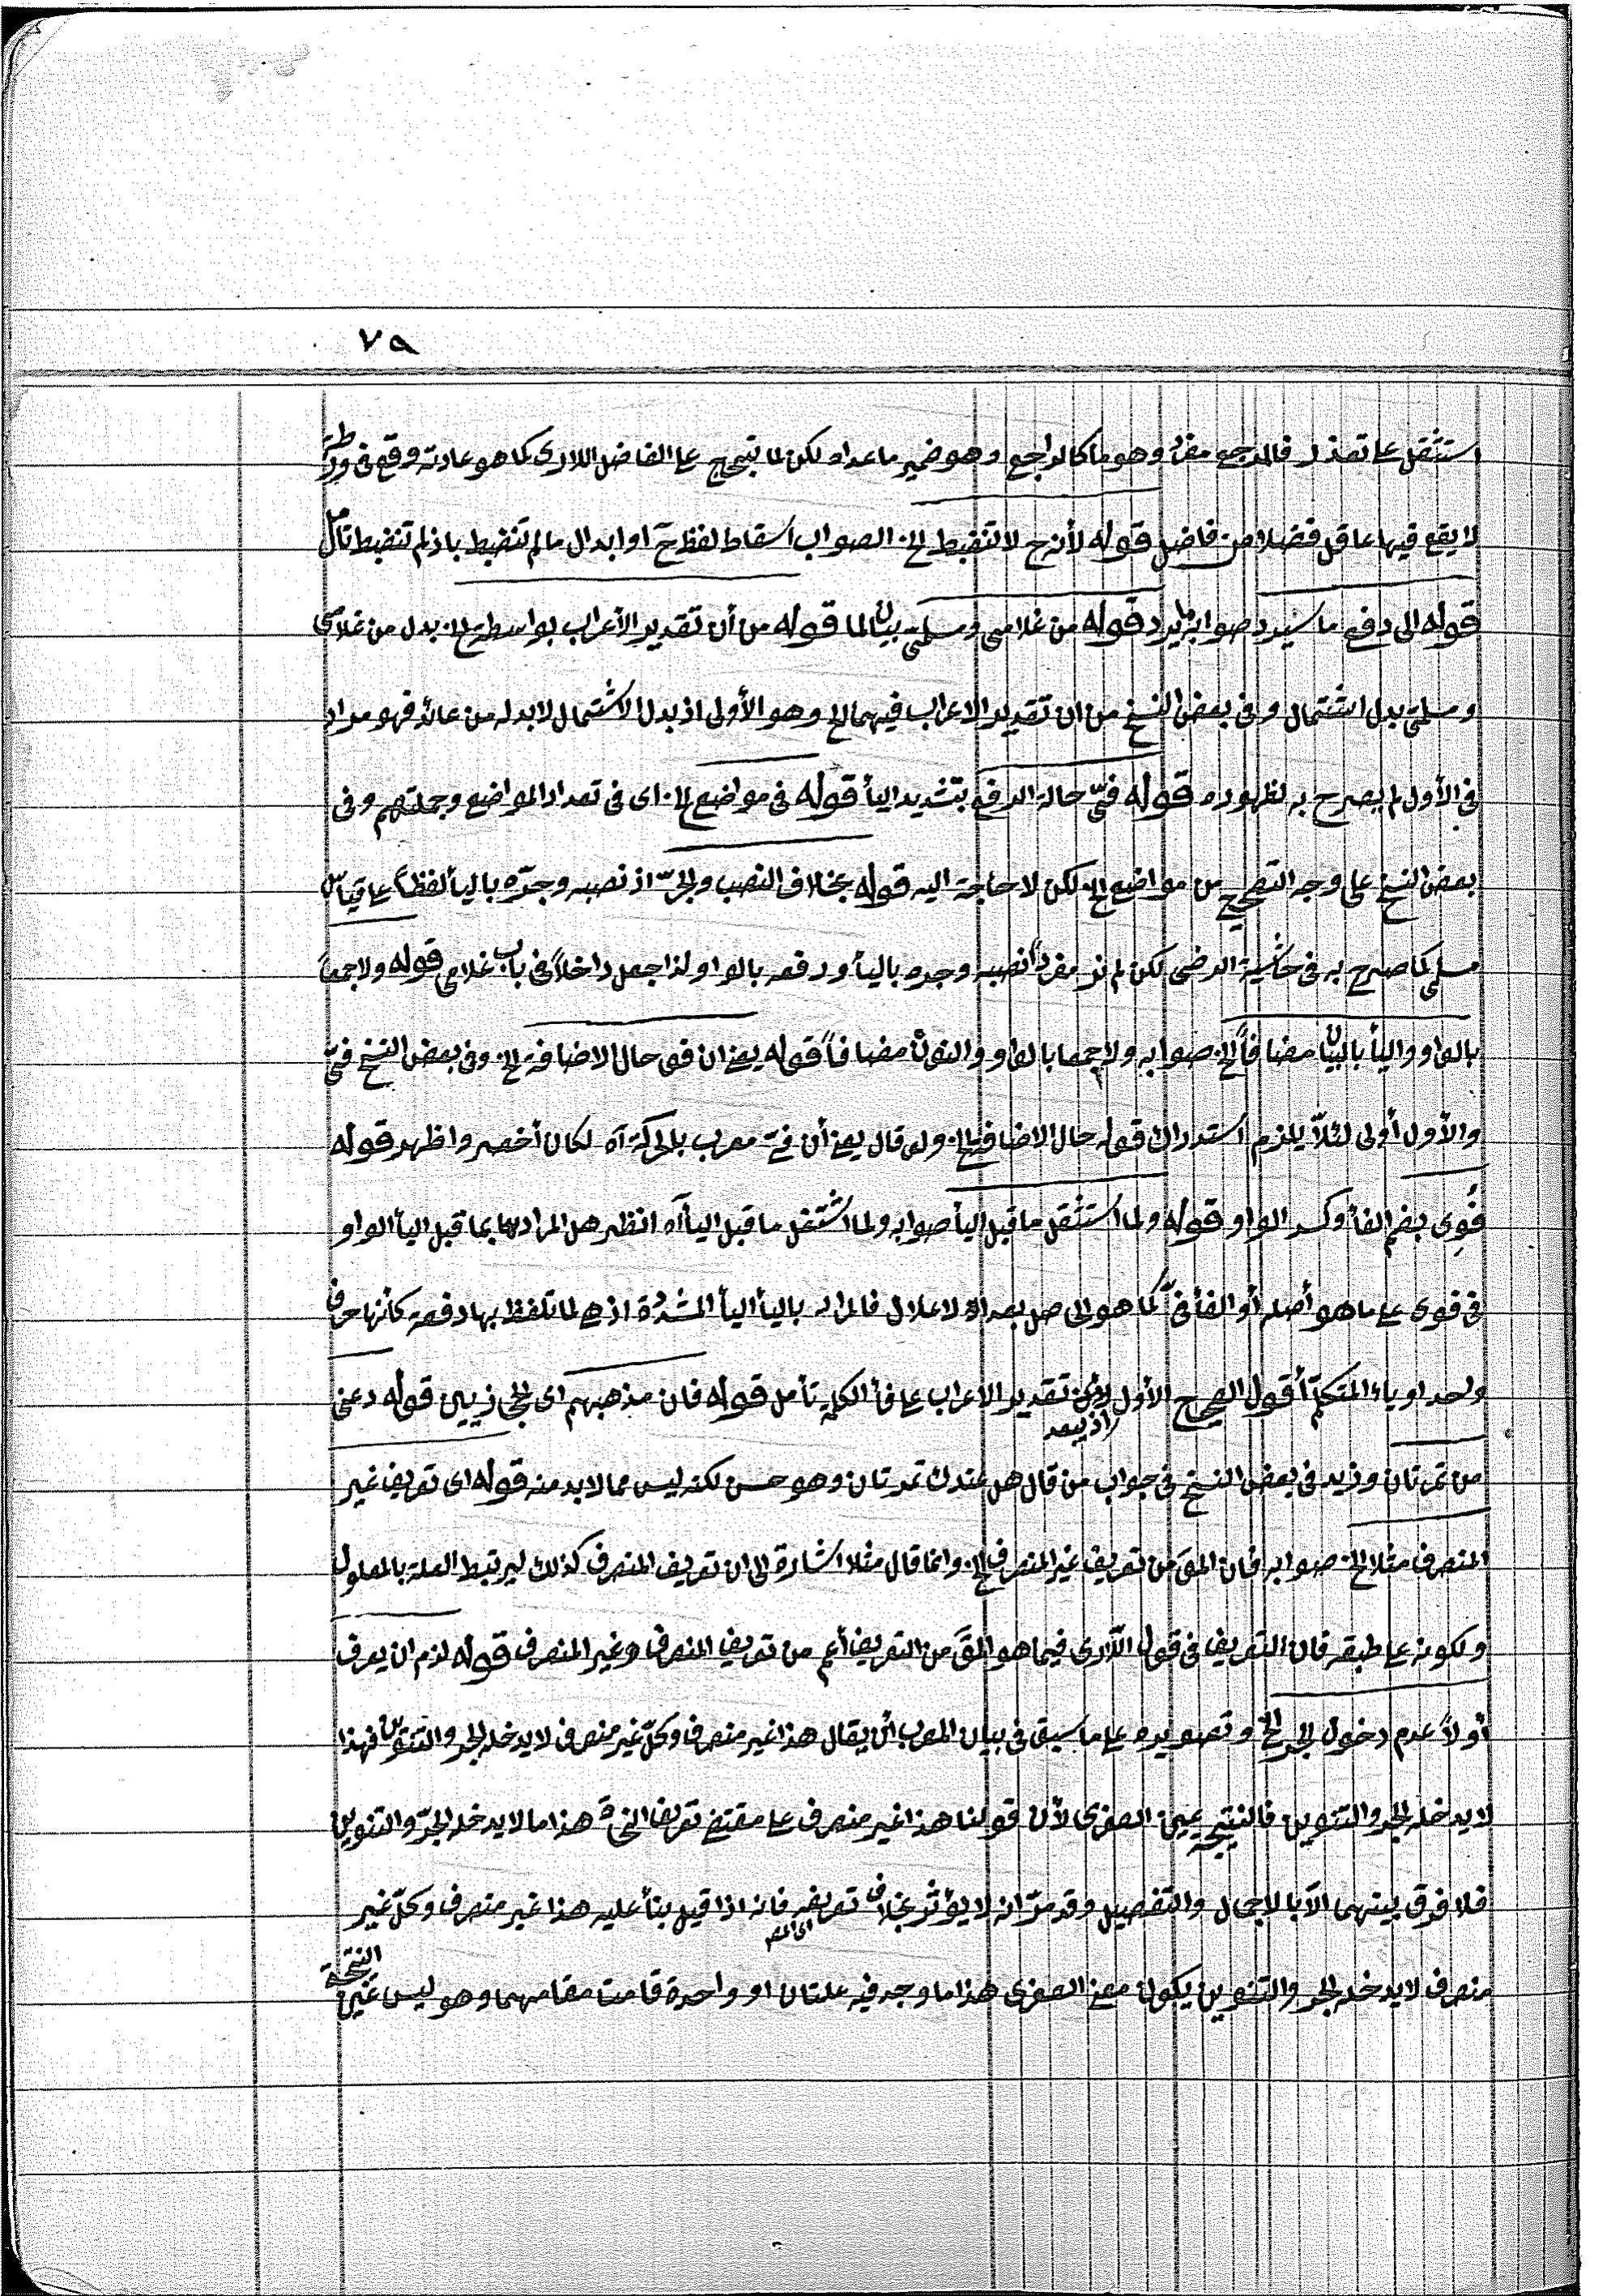 ٧٩
استثقل عا تعذر فالمرجع مفرد وهو ما كالراجع وهو ضمير ما عداه لكن لما تبجح عا الفاضل اللارى كما هو عادته وقع فى ورطة
لا يقع فيها عاقل فضلا من فاضل قوله لأنه ح لا تنضبط الخ الصواب اسقاط لفظ ح او ابدال ما لم تنضبط باذ لم تنضبط تأمل
قوله الى دفع ما سيرد صوابه يرد قوله من غلامى ومسلمى بيان لما قوله من أن تقدير الأعراب بواسطة الخ بدل من غلامى
ومسلمى بدل اشتمال وفى بعض النسخ من ان تقدير الاعراب فيهما الخ وهو الأولى اذ بدل الاشتمال لا بد له من عائد فهو مراد
فى الأول لم يصرح به لظهوره قوله فىّ حالة الرفع بتشديد اليأ قوله فى مواضع الخ اى فى تعداد المواضع وجملتهم وفى
بعض النسخ على وجه التصحيح من مواضع الخ لكن لا حاجة اليه قوله بخلاف النصب والجرّ اذ نصبه وجرّه باليأ لفظاً عا قياس
مسلمى كما صرح به فى حاشية الرضى لكن لم نر مفرداً نصبه وجره باليأ ورفعه بالواو لذا جعل داخلاً فى باب غلامى قوله ولا جمعاً
بالواو واليأ بالبيان مضافاً الخ صوابه ولا جمعا بالواو والنون مضافاً قوله يعنى ان فى حال الاضافة الخ وفى بعض النسخ فىّ
والأول أولى لئلاّ يلزم استدراك قوله حال الاضافة الخ ولو قال يعنى أن فىّ معرب بالحركة آه لكان أخصر واظهر قوله
فُوِى بضم الفأ وكسر الواو قوله ولما استثقل ما قبل اليأ صوابه ولما اشتغل ما قبل اليأ آه انظر هل المراد بما قبل اليأ الواو
فى فوى عا ما هو أصله أو الفأ فىّ كما هو الحاصل بعد الاعلال فالمراد باليأ اليأ المشدّدة اذ هى لما تلفظ بها دفعة كأنها حرف
واحد او ياء المتكلم أقول الصحيح الأول اذ يبعد تقدير الاعراب عا فأ الكلمة تأمل قوله فان مذهبهم اى الحجازيين قوله دعنى
من تمرتان وزيد فى بعض النسخ فى جواب من قال هل عندك تمرتان وهو حسن لكنه ليس مما لا بد منه قوله اى تعريف غير
المنصرف مثلا الخ صوابه فان المقَ من تعريف غير المنصرف الخ وانما قال مثلا اشارة الى ان تعريف المنصرف كذلك ليرتبط العلة بالمعلول
ولكونه عا طبقه فان التعريف فى قول اللّارى فيما هو المقَ من التعريف أعم من تعريف المنصرف وغير المنصرف قوله لزم ان يعرف
أولاً عدم دخول الجر الخ وتصويره عا ما سبق فى بيان المعرب أن يقال هذا غير منصرف وكلّ غير منصرف لا يدخله الجر والتنوين فهذا
لا يدخله الجر والتنوين فالنتيجة عين الصغرى لأن قولنا هذا غير منصرف عا مقتضى تعريف النحاة هذا ما لا يدخله الجرّ والتنوين
فلا فرق بينهما الاّ بالاجمال والتفصيل وقد مرّ انه لا يؤثر بخلاف تعريفه اى المص فانه اذا قيل بنأ عليه هذا غير منصرف وكلّ غير
منصرف لا يدخله الجر والتنوين يكون معنى الصغرى هذا ما وجد فيه علتان او واحدة قامت مقامهما وهو ليس عين النتيجة